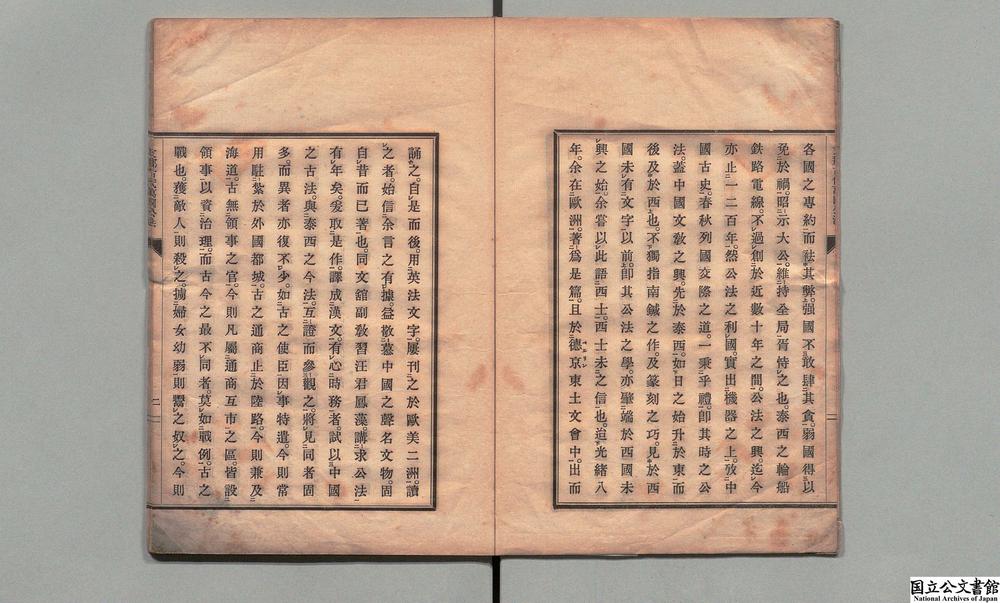 各國之專約而祛其弊。强國不敢肆其貪。弱國得以
免於禍。昭示大公。維持全局。胥恃之也。泰西之輪船
鉄路電線。不過創於近數十年之間。公法之興。迄今
亦止一二百年。然公法之利國。實出機器之上。攷中
國古史。春秋列國交際之道。一秉乎禮。卽其時之公
法。蓋中國文敎之興。先於泰西。如日之始升於東。而
後及於西也。不獨指南鍼之作。及篆刻之巧。見於西
國未有文字以前。卽其公法之學。亦肇端於西國未
興之始。余嘗以此語西士。西士未之信也。迨光緖八
年。余在歐洲。著爲是篇。且於德京東土文會中。出而
誦之。自是而後。用英法文字。屢刊之於歐美二洲。讀
之者。始信余言之有據。益散慕中國之聲名文物。固
自昔而已著也。同文舘副敎習汪君鳳藻。講求公法
有年矣。爰取是作。譯成漢文。有心時務者。試以中國
之古法。與泰西之今法。互證而參觀之。將見同者固
多。而異者亦復不少。如古之使臣因事特遣。今則常
用駐紮於外國都城。古之通商止於陸路。今則兼及
海道。古無領事之官。今則凡屬通商互市之區。皆設
領事以資治理。而古今之最不同者。莫如戰例。古之
戰也。獲敵人則殺之。擄婦女幼弱。則鬻之奴之。今則
二
国立公文書館
National Archives of Japan